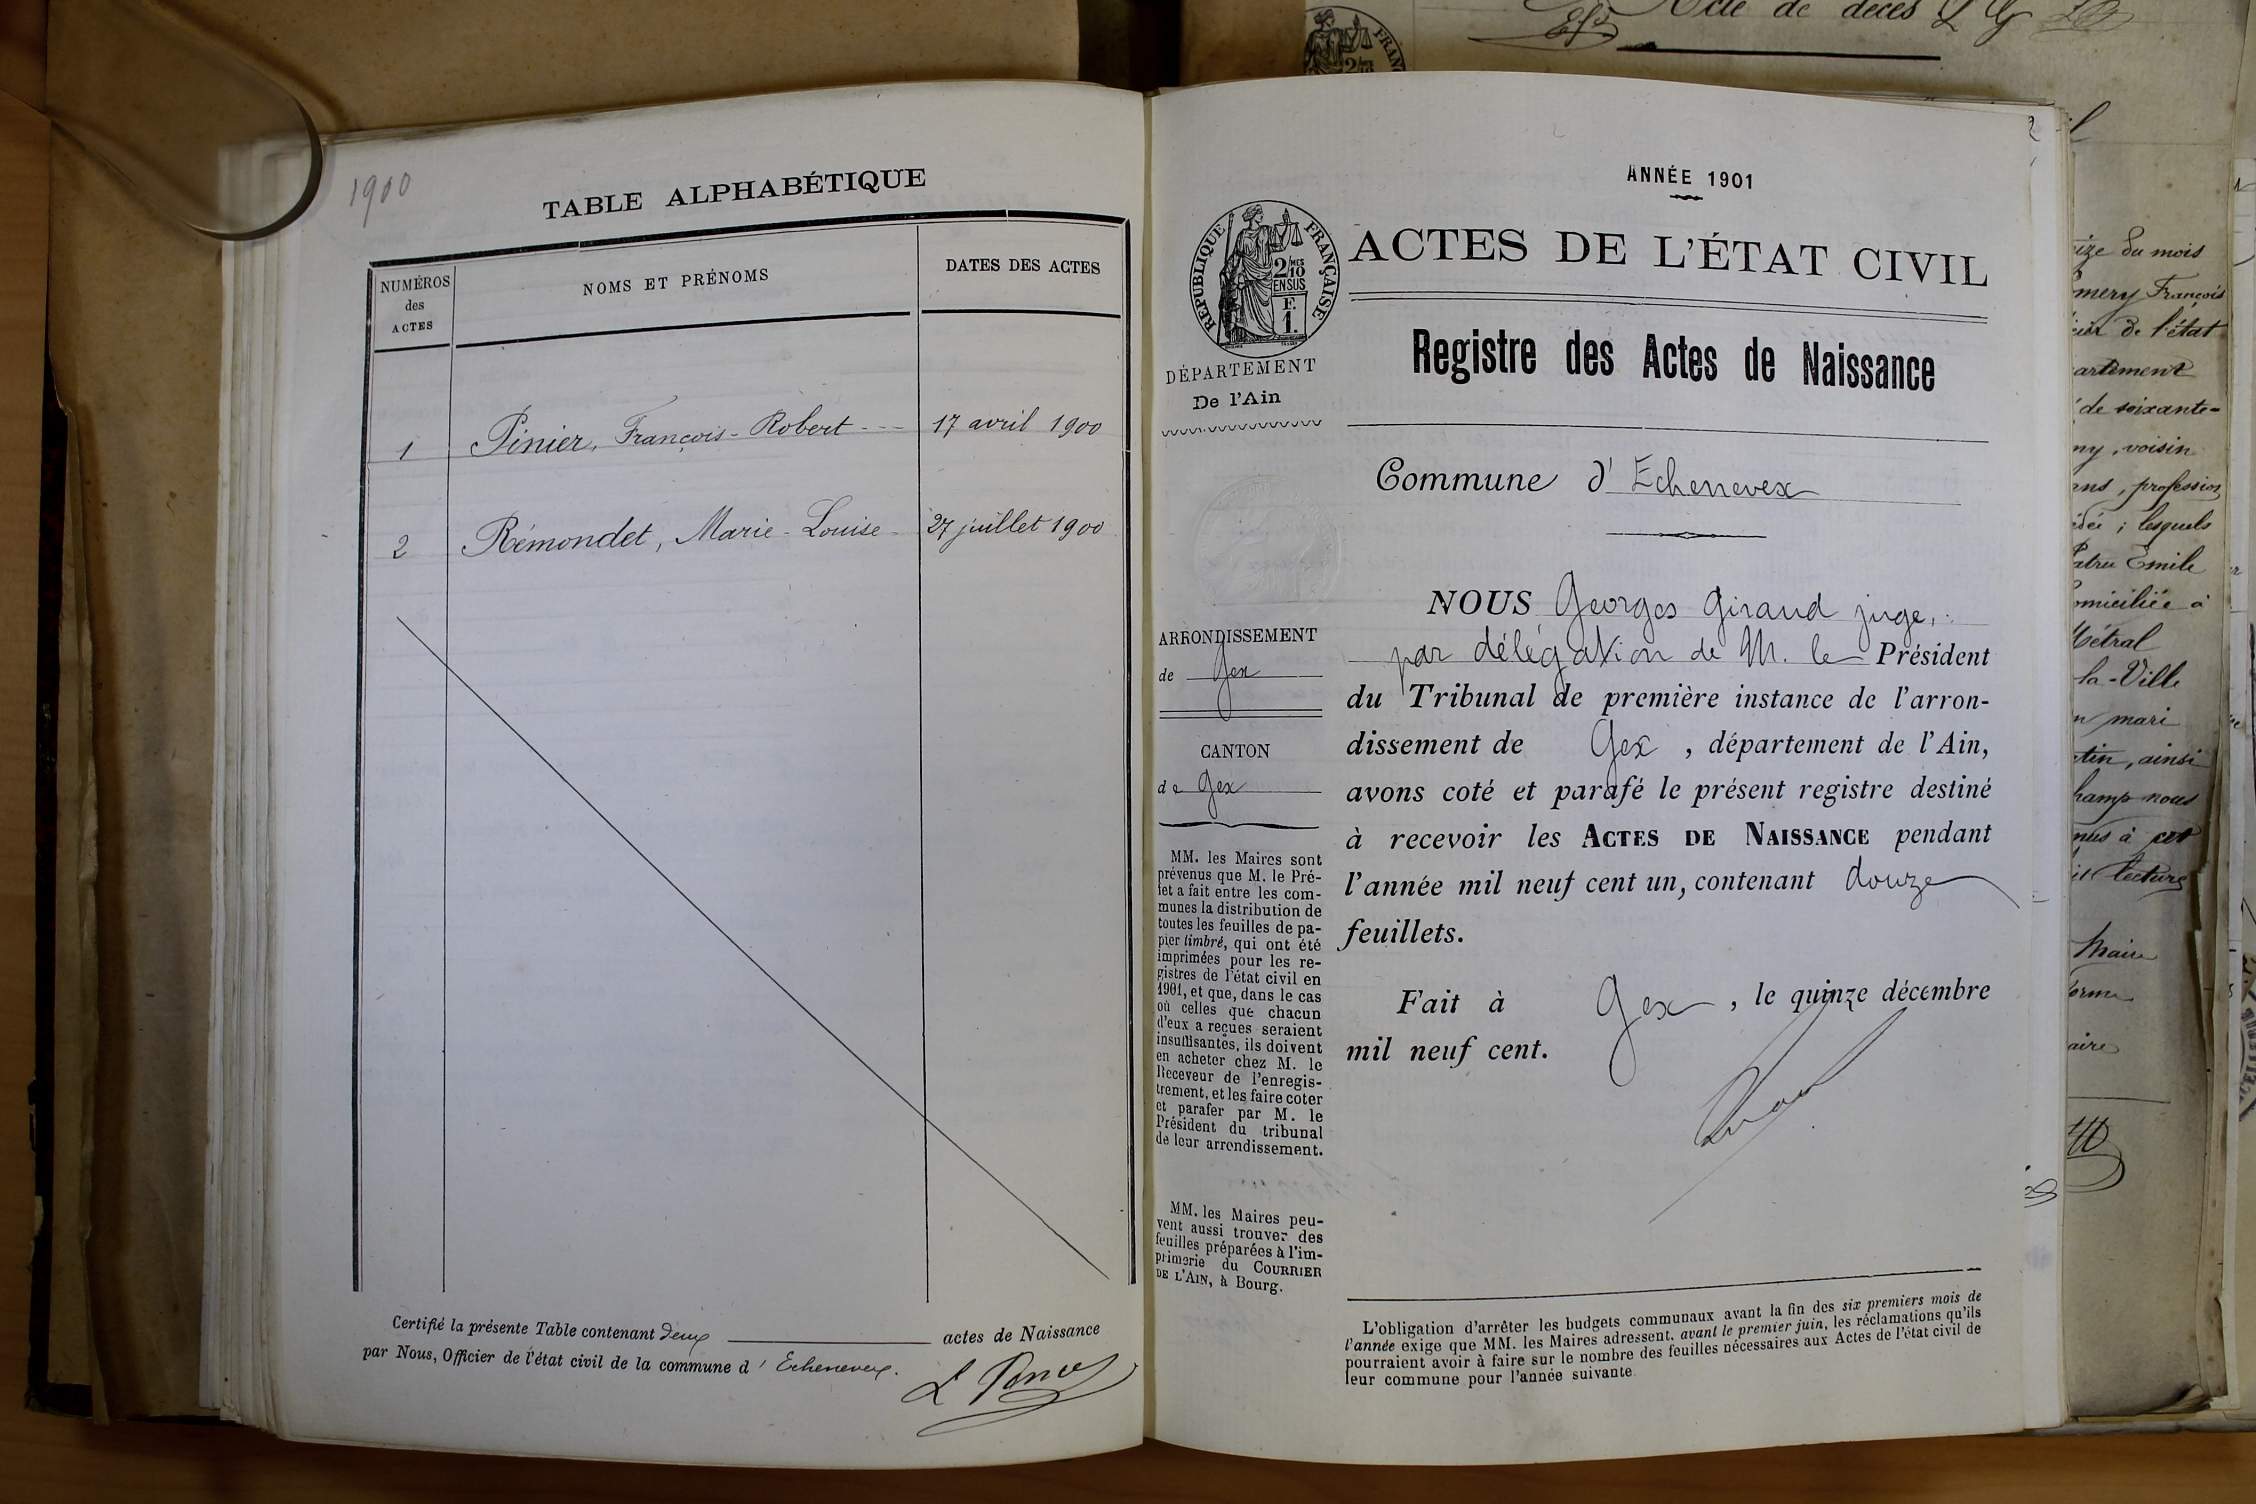 1900
TABLE ALPHABÉTIQUE
NUMÉROS
des
ACTES
NOMS ET PRÉNOMS
DATES DES ACTES
1 Pinier, François-Robert --- 17 avril 1900
2 Rémondet, Marie-Louise - 27 juillet 1900
Certifié la présente Table contenant deux actes de Naissance
par Nous, Officier de l'état civil de la commune d'Echenevex.
ANNÉE 1901
RÉPUBLIQUE FRANÇAISE
2/10 MES
EN SUS
F.
1.
ACTES DE L'ÉTAT CIVIL
Registre des Actes de Naissance
DÉPARTEMENT
De l'Ain
Commune d'Echenevex
ARRONDISSEMENT
de Gex
CANTON
de Gex
MM. les Maires sont
prévenus que M. le Pré-
fet a fait entre les com-
munes la distribution de
toutes les feuilles de pa-
pier timbré, qui ont été
imprimées pour les re-
gistres de l'état civil en
1901, et que, dans le cas
où celles que chacun
d'eux a reçues seraient
insuffisantes, ils doivent
en acheter chez M. le
Receveur de l'enregis-
trement, et les faire coter
et parafer par M. le
Président du tribunal
de leur arrondissement.
MM. les Maires peu-
vent aussi trouver des
feuilles préparées à l'im-
primerie du COURRIER
DE L'AIN, à Bourg.
NOUS Georges Giraud juge,
par délégation de M. le Président
du Tribunal de première instance de l'arron-
dissement de Gex, département de l'Ain,
avons coté et parafé le présent registre destiné
à recevoir les ACTES DE NAISSANCE pendant
l'année mil neuf cent un, contenant douze
feuillets.
Fait à Gex, le quinze décembre
mil neuf cent.
L'obligation d'arrêter les budgets communaux avant la fin des six premiers mois de
l'année exige que MM. les Maires adressent, avant le premier juin, les réclamations qu'ils
pourraient avoir à faire sur le nombre des feuilles nécessaires aux Actes de l'état civil de
leur commune pour l'année suivante.
Acte de décès
du mois
François
de l'état
de soixante-
voisin
profession
; lesquels
Emile
à
Métral
la-Ville
mari
, ainsi
nous
à cet
lecture
Maire